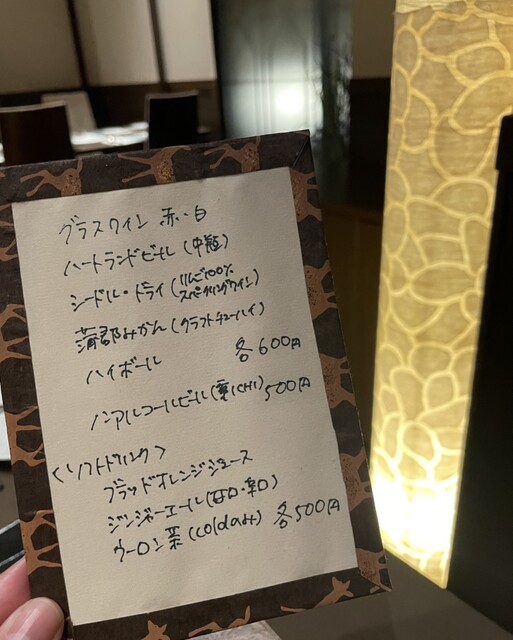 グラスワイン 赤・白
ハートランドビール (中瓶)
シードル・ドライ (りんご100% スパークリングワイン)
蒲郡みかん (クラフトチューハイ)
ハイボール 各600円
ノンアルコールビール 500円
〈ソフトドリンク〉
ブラッドオレンジジュース
ジンジャーエール (甘口・辛口)
ウーロン茶 (cold or Hot) 各500円